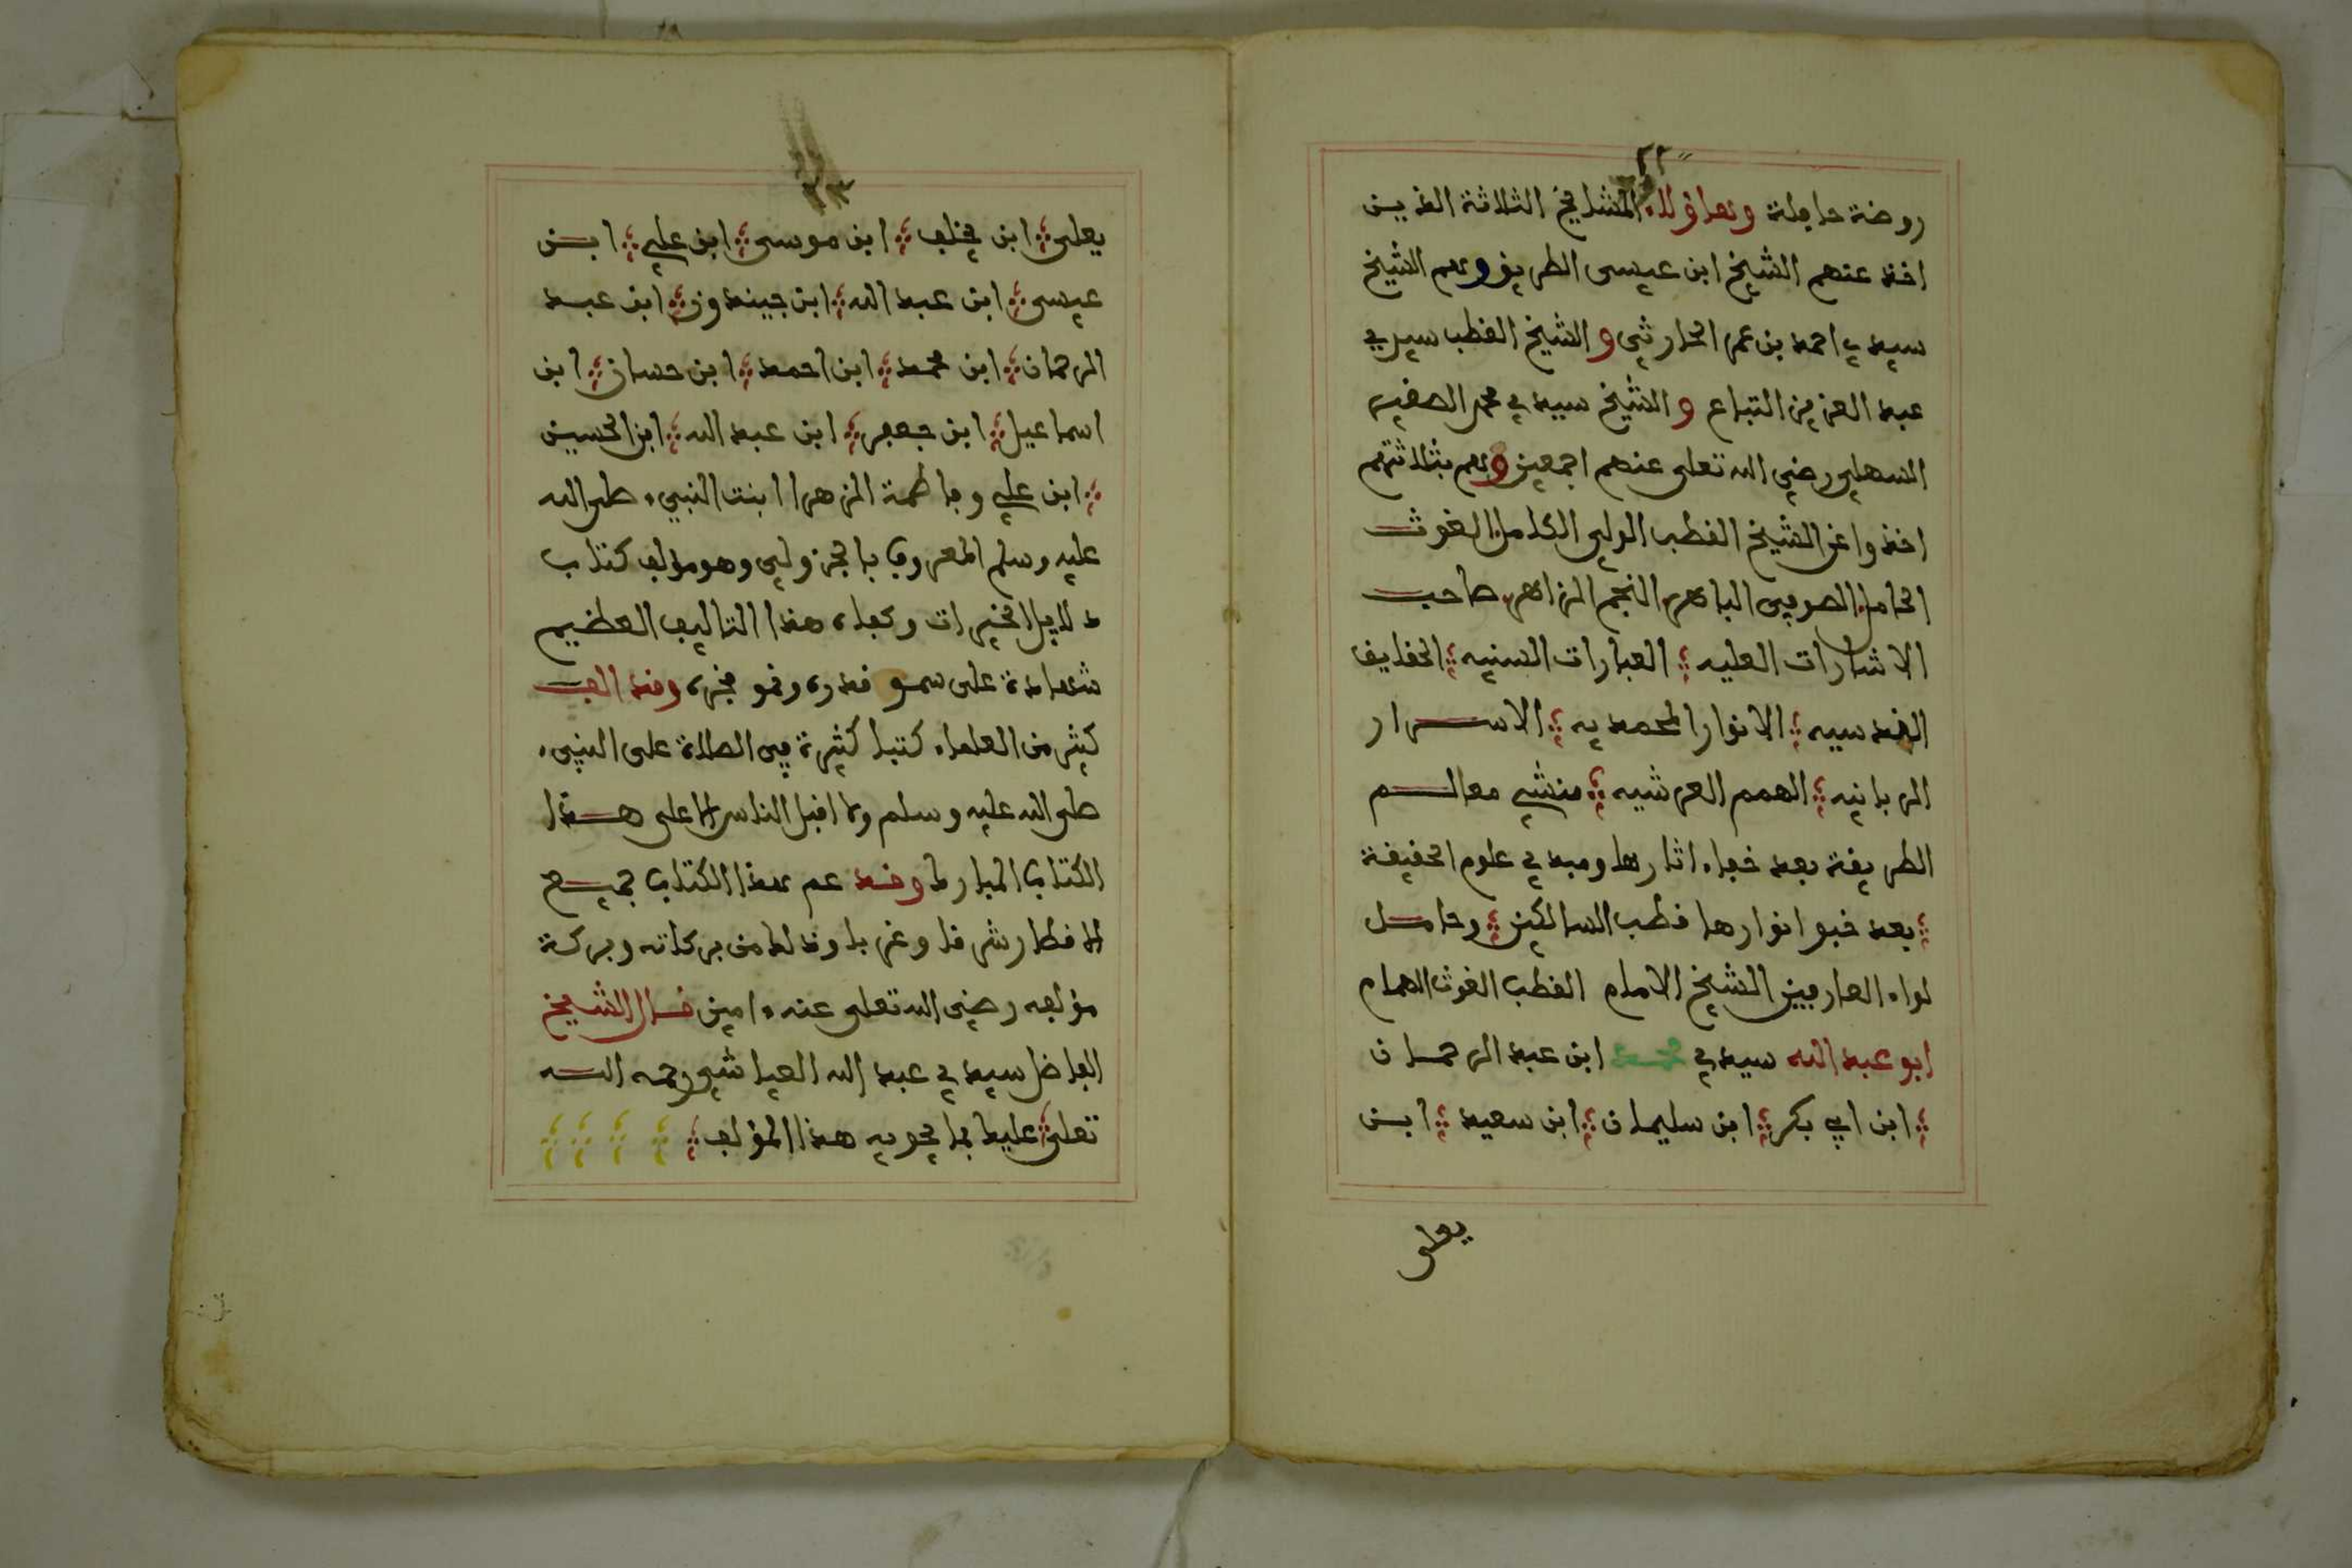 ٢٢
روضة حافلة وهاؤلاء المشايخ الثلاثة الذين
اخذ عنهم الشيخ ابن عيسى الطريق وهم الشيخ
سيدي احمد بن عمر الحارثي و الشيخ القطب سيدي
عبد العزيز التباع و الشيخ سيدي محمد الصغير
السهلي رضي الله تعلى عنهم اجمعين وهم بثلاثتهم
اخذوا عن الشيخ القطب الولي الكامل الغوث
الحامل الصوفي الباهر النجم الزاهر صاحب
الاشارات العليه العبارات السنيه الحقايق
القدسيه الانوار المحمديه الاسرار
الربانيه الهمم العرشيه منشي معالم
الطريقة بعد خفاء اثارها ومبدي علوم الحقيقة
بعد خبو انوارها قطب السالكين وحامل
لواء العارفين الشيخ الامام القطب الغوث الهمام
ابو عبد الله سيدي محمد ابن عبد الرحمان
ابن ابي بكر ابن سليمان ابن سعيد ابن
يعلى
٢٣
يعلى ابن يخلف ابن موسى ابن علي ابن
عيسى ابن عبد الله ابن جيندوز ابن عبد
الرحمان ابن محمد ابن احمد ابن حسان ابن
اسماعيل ابن جعفر ابن عبد الله ابن الحسين
ابن علي وفاطمة الزهرا ابنت النبيء صلى الله
عليه وسلم المعروف بالجزولي وهو مؤلف كتاب
دلايل الخيرات وكفاه هذا التاليف العظيم
شهادة على سمو قدره ونمو فخره وقد الف
كثير من العلماء كتبا كثيرة في الصلاة على النبيء
صلى الله عليه وسلم وما اقبل الناس الا على هذا
الكتاب المبارك وقد عم هذا الكتاب جميع
الاقطار شرقا وغربا وذلك من بركاته وبركة
مؤلفه رضي الله تعلى عنه ءامين قال الشيخ
الفاضل سيدي عبد الله العياشي رحمه الله
تعلى عليك بما يحويه هذا المؤلف